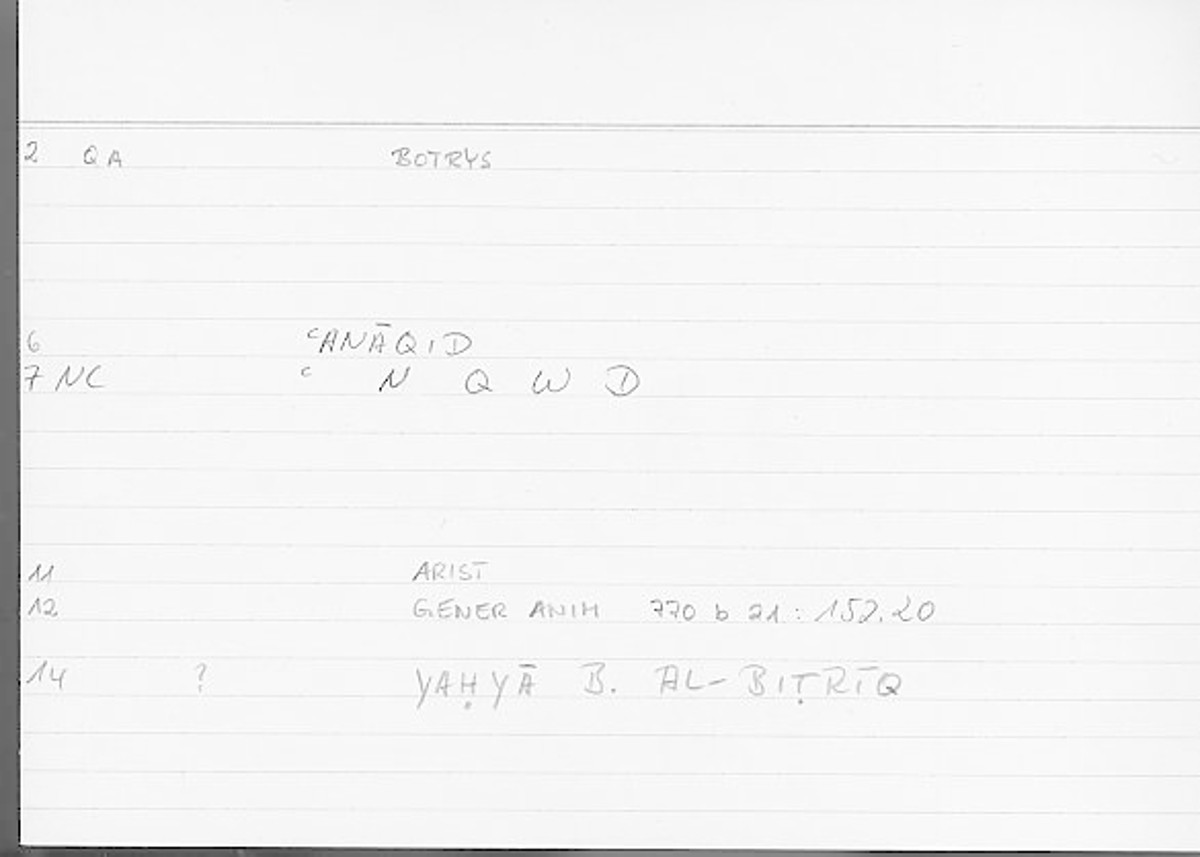 2 QA BOTRYS
6 ʿANĀQID
7 NC ʿ N Q W D
11 ARIST
12 GENER ANIM 770 b 21 : 152.20
14 ? YAḤYĀ B. AL-BIṬRĪQ